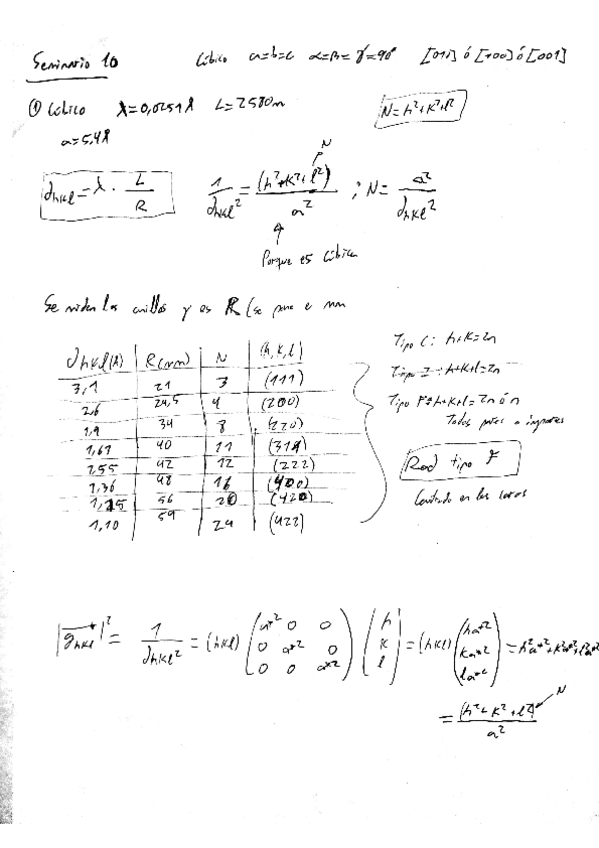 Seminario 10 Cúbico a=b=c α=β=γ=90° [010] ó [100] ó [001]
① Cúbico λ=0,0251Å L=2580m N=h²+k²+l²
a=5,4Å
d_hkl = λ · L/R 1/d_hkl² = (h²+k²+l²)/a² ; N = a²/d_hkl²
N
Porque es cúbica
Se miden los anillos y es R (se pone e mm
d_hkl(Å) R(mm) N (h,k,l)
3,1 21 3 (111)
2,6 24,5 4 (200)
1,9 34 8 (220)
1,61 40 11 (311)
1,55 42 12 (222)
1,36 48 16 (400)
1,25 56 20 (420)
1,10 59 24 (422)
Tipo C: h+k=2n
Tipo I: h+k+l=2n
Tipo F: h+k+l=2n ó n
Todos pares o impares
Red tipo F
Centrado en las caras
|g_hkl*|² = 1/d_hkl² = (hkl) (a*² 0 0 / 0 a*² 0 / 0 0 a*²) (h / k / l) = (hkl) (ha*² / ka*² / la*²) = h²a*²+k²a*²+l²a*²
= (h²+k²+l²)/a² N